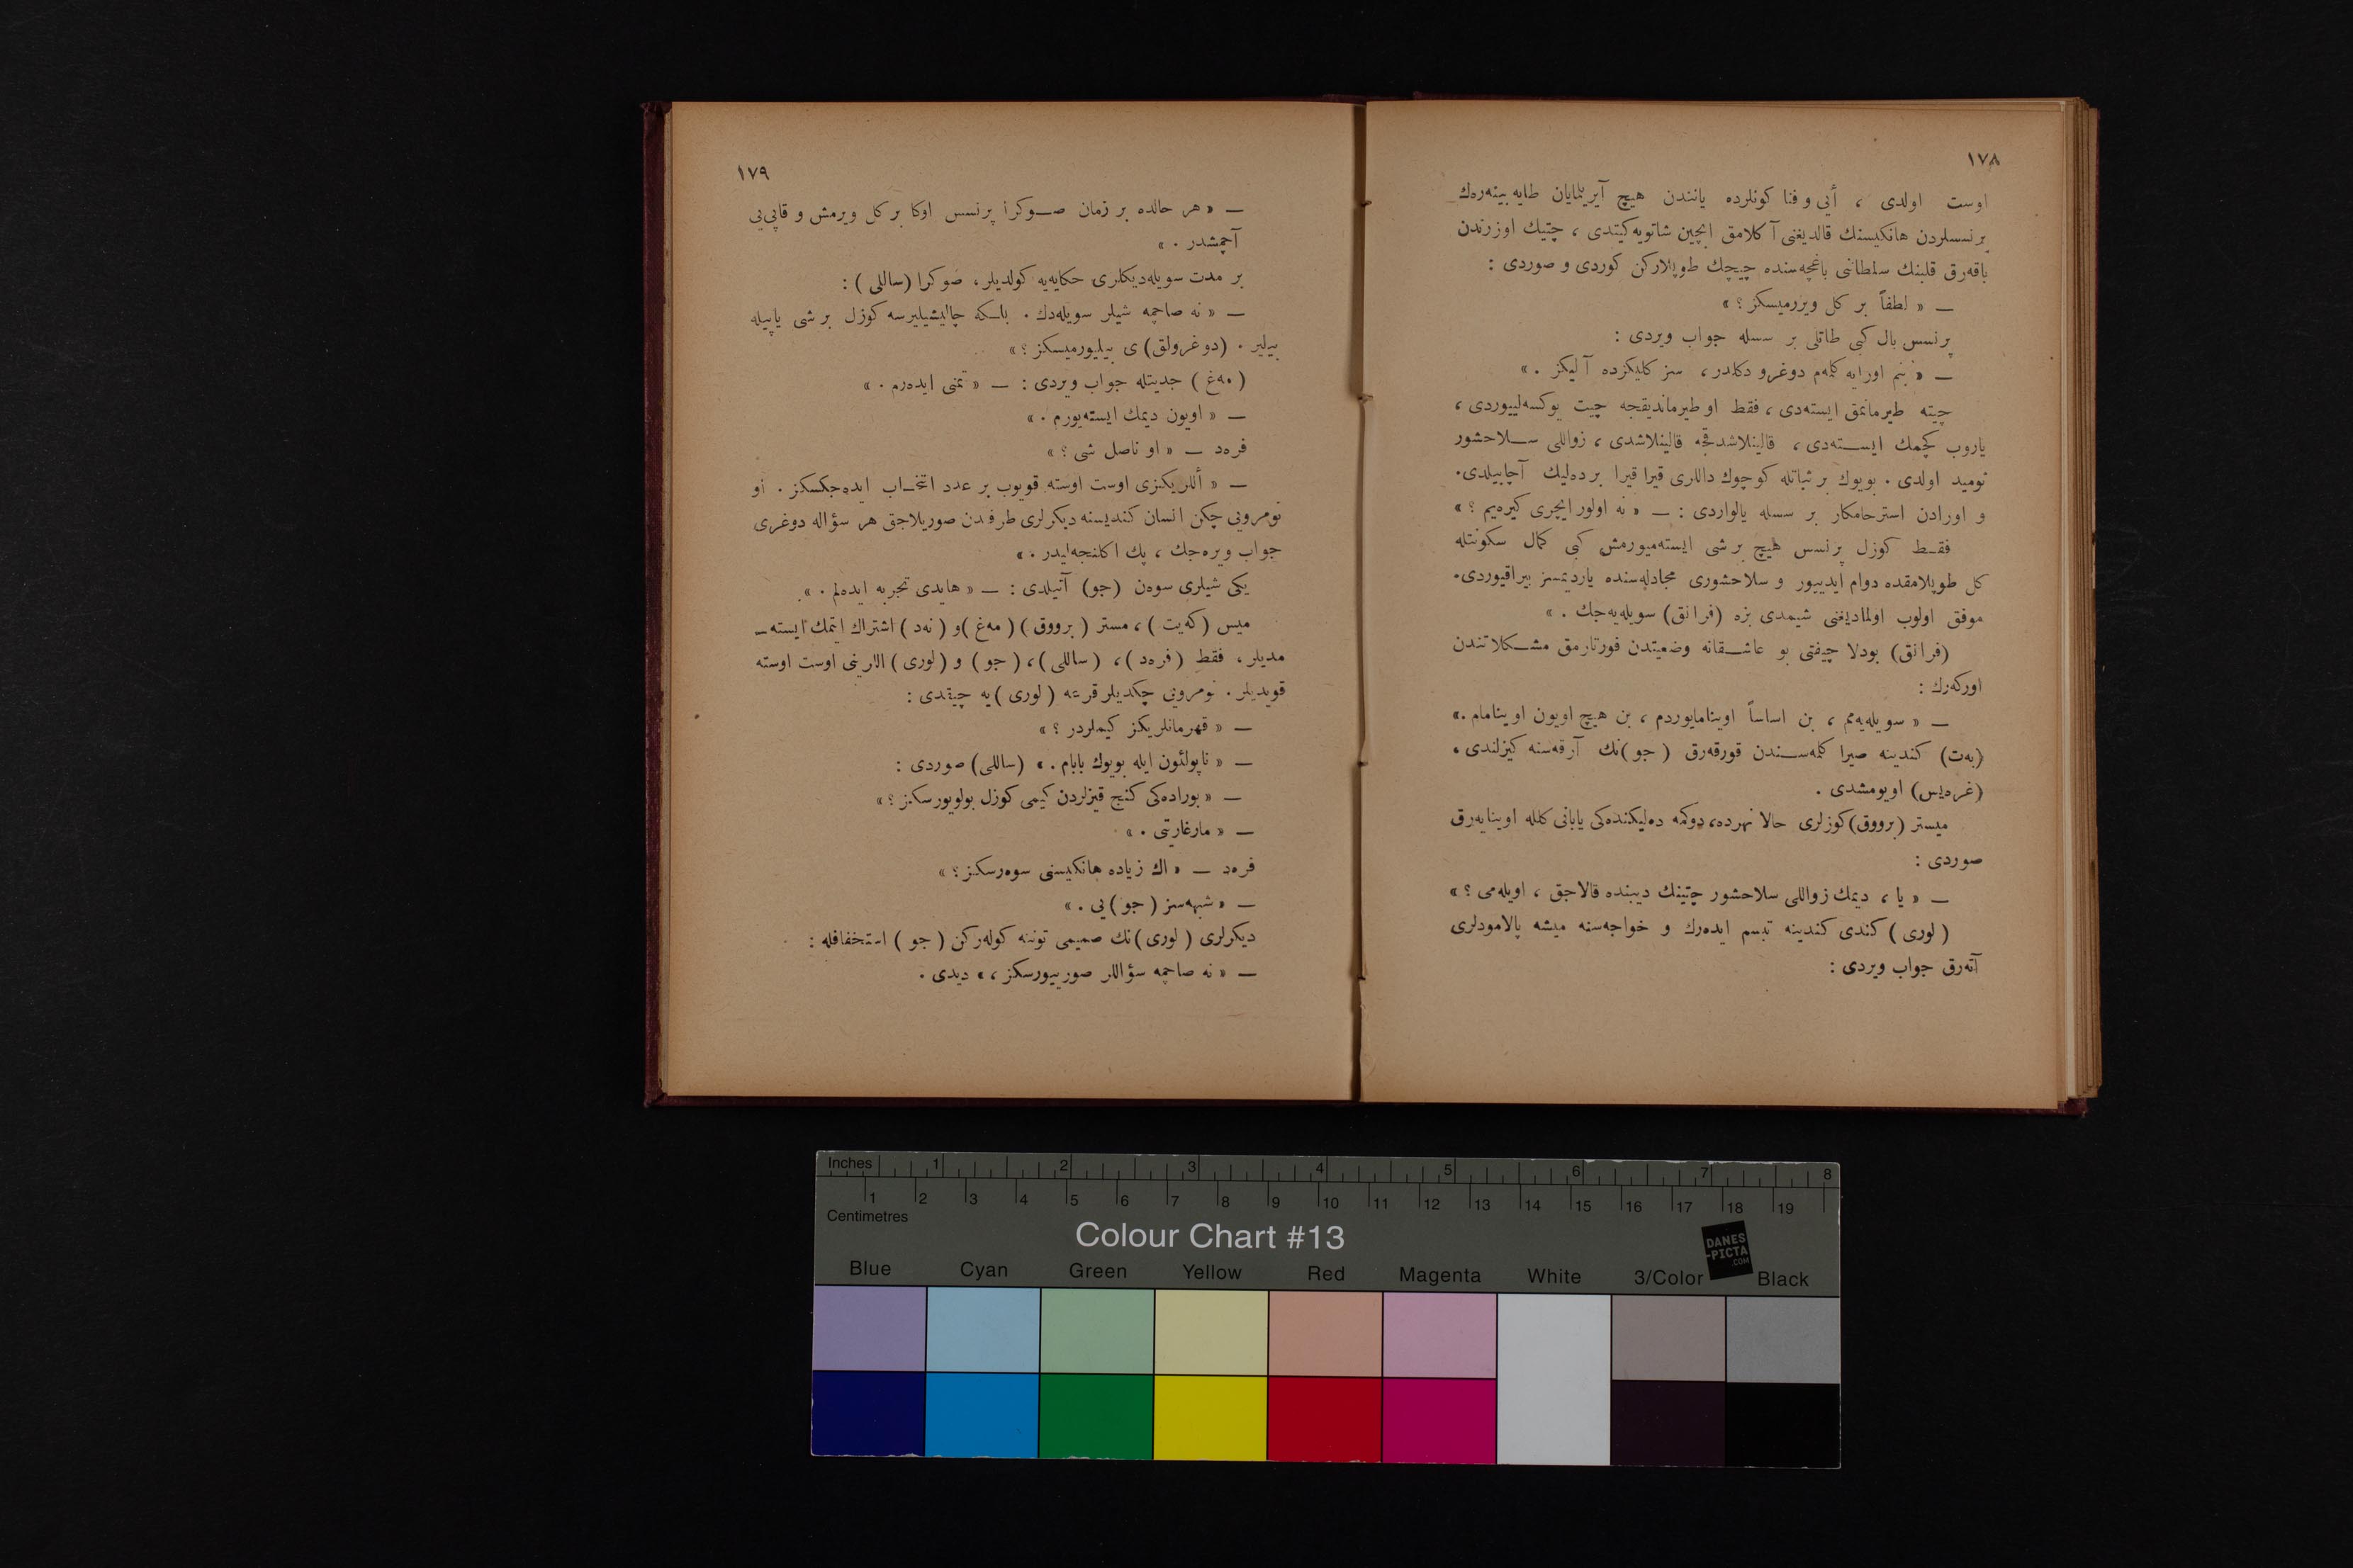 ١٧٨
اوست اولدی ، أیی و فنا کونلرده یانندن هیچ آیریلمایان طایه بینه‌رەك
پرنسسلردن هانکیسنك قالدیغنی آکلامق ایچین شاتویه کیتدی ، چتیك اوزرندن
باقەرق قلبنك سلطاننی باغچه‌سنده چیچك طوپلارکن کوردی و صوردی :
— « لطفاً بر کل ویررمیسکز ؟ »
پرنسس بال کبی طاتلی بر سسله جواب ویردی :
— « بنم اورایه کلمه‌م دوغرو دکلدر ، سز کلیکزده آلیکز . »
چیته طیرمانمق ایسته‌دی ، فقط او طیرماندیقجه چیت یوکسه‌لییوردی ،
یاروب کچمك ایستەدی ، قالینلاشدقجه قالینلاشدی ، زواللی سلاحشور
نومید اولدی . بویوك بر ثباتله کوچوك داللری قیرا قیرا بر ده‌لیك آچابیلدی .
و اورادن استرحامکار بر سسله یالواردی : — « نه اولور ایچری کیره‌یم ؟ »
فقط کوزل پرنسس هیچ بر شی ایسته‌میورمش کبی کمال سکونتله
کل طوپلامقده دوام ایدییور و سلاحشوری مجادله‌سنده یاردیمسز بیراقیوردی .
موفق اولوب اولمادیغنی شیمدی بزه (فرانق) سویله‌یه‌جك . »
(فرانق) بودلا چیفتی بو عاشقانه وضعیتدن قورتارمق مشکلاتندن
اورکەرك :
— « سویله‌یەمم ، بن اساساً اوینامایوردم ، بن هیچ اویون اوینامام . »
(بەت) کندینه صیرا کلمەسندن قورقەرق (جو)نك آرقەسنه کیزلندی ،
(غرەیس) اویومشدی .
میستر (برووق) کوزلری حالا نهرده ، دوکمه ده‌لیکنده‌کی یابانی کلله اوینایەرق
صوردی :
— « یا ، دیمك زواللی سلاحشور چتینك دیبنده قالاجق ، اویله‌می ؟ »
(لوری) کندی کندینه تبسم ایدەرك و خواجەسنه میشه پالامودلری
آتەرق جواب ویردی :
١٧٩
— « هر حالده بر زمان صوکرا پرنسس اوکا بر کل ویرمش و قاپی‌یی
آچمشدر . »
بر مدت سویله‌دیکلری حکایه‌یه کولدیلر ، صوکرا (ساللی) :
— « نه صاچمه شیلر سویله‌دك . باشقه چالیشیلیرسه کوزل بر شی یاپیله
بیلیر . (دوغرولق) ی بیلیورمیسکز ؟ »
(مەغ) جدیتله جواب ویردی : — « تمنی ایدەرم . »
— « اویون دیمك ایسته‌یورم . »
فرەد — « او ناصل شی ؟ »
— « أللریکزی اوست اوسته قویوب بر عدد انتخاب ایده‌جکسکز . او
نومرویی چکن انسان کندیسنه دیکرلری طرفندن صوریلاجق هر سؤاله دوغری
جواب ویرەجك ، پك اکلنجه‌لیدر . »
یکی شیلری سوەن (جو) آتیلدی : — « هایدی تجربه ایده‌لم . »
میس (کەیت) ، مستر (برووق) (مەغ) و (نەد) اشتراك ایتمك ایسته -
مدیلر ، فقط (فرەد) ، (ساللی) ، (جو) و (لوری) اللرینی اوست اوسته
قویدیلر . نومرویی چکدیلر قرعه (لوری) یه چیقدی :
— « قهرمانلریکز کیملردر ؟ »
— « ناپولئون ایله بویوك بابام . » (ساللی) صوردی :
— « بوراده‌کی کنج قیزلردن کیمی کوزل بولویورسکز ؟ »
— « مارغاریتی . »
فرەد — « اك زیاده هانکیسنی سوەرسکز ؟ »
— « شبهه‌سز (جو) یی . »
دیکرلری (لوری) نك صمیمی تونینه کولەرکن (جو) استخفافله :
— « نه صاچمه سؤاللر صورییورسکز ، » دیدی .
Inches 1 2 3 4 5 6 7 8
1 2 3 4 5 6 7 8 9 10 11 12 13 14 15 16 17 18 19
Centimetres
Colour Chart #13
DANES
-PICTA
.COM
Blue Cyan Green Yellow Red Magenta White 3/Color Black